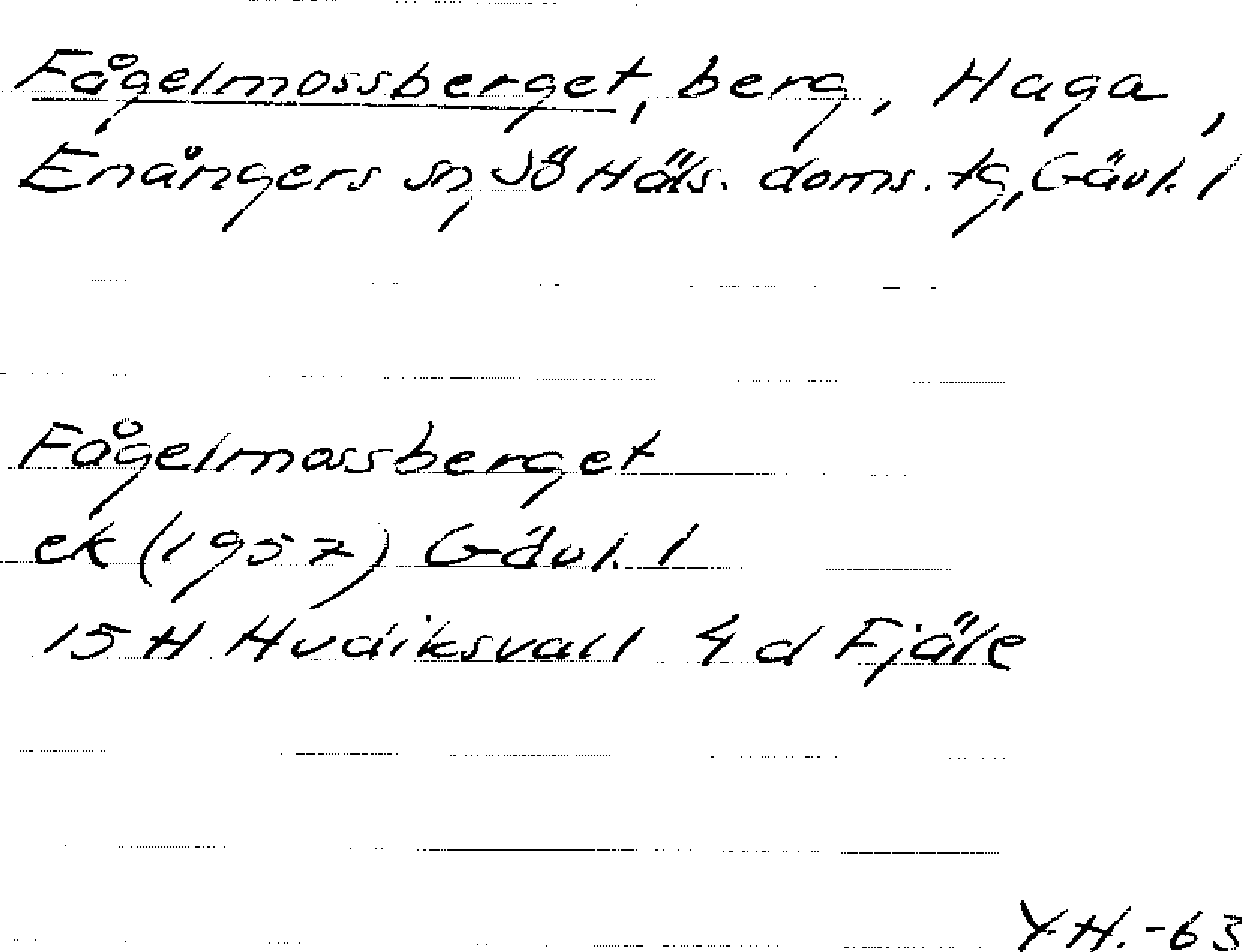 Fågelmossberget, berg, Haga,
Enångers sn, Sö Häls. doms. tg, Gävl. l
Fågelmossberget
ek (1957) Gävl. l
15 H Hudiksvall 4 d Fjäle
Y.H.-63